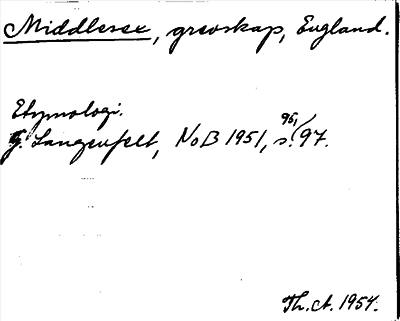 Middlesex, grevskap, England.
Etymologi.
G. Langenfelt, NoB 1951, s. 96, 97.
Th. A. 1954.